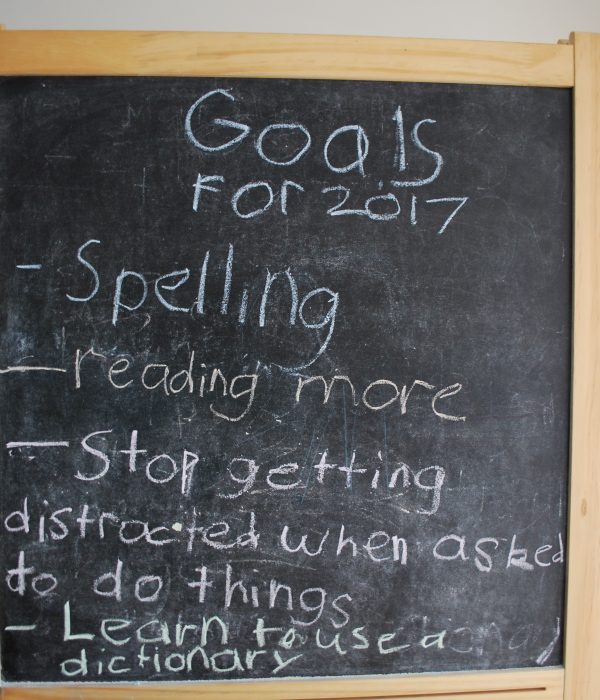 Goals
For 2017
- Spelling
- reading more
- Stop getting
distracted when asked
to do things
- Learn to use a
dictionary